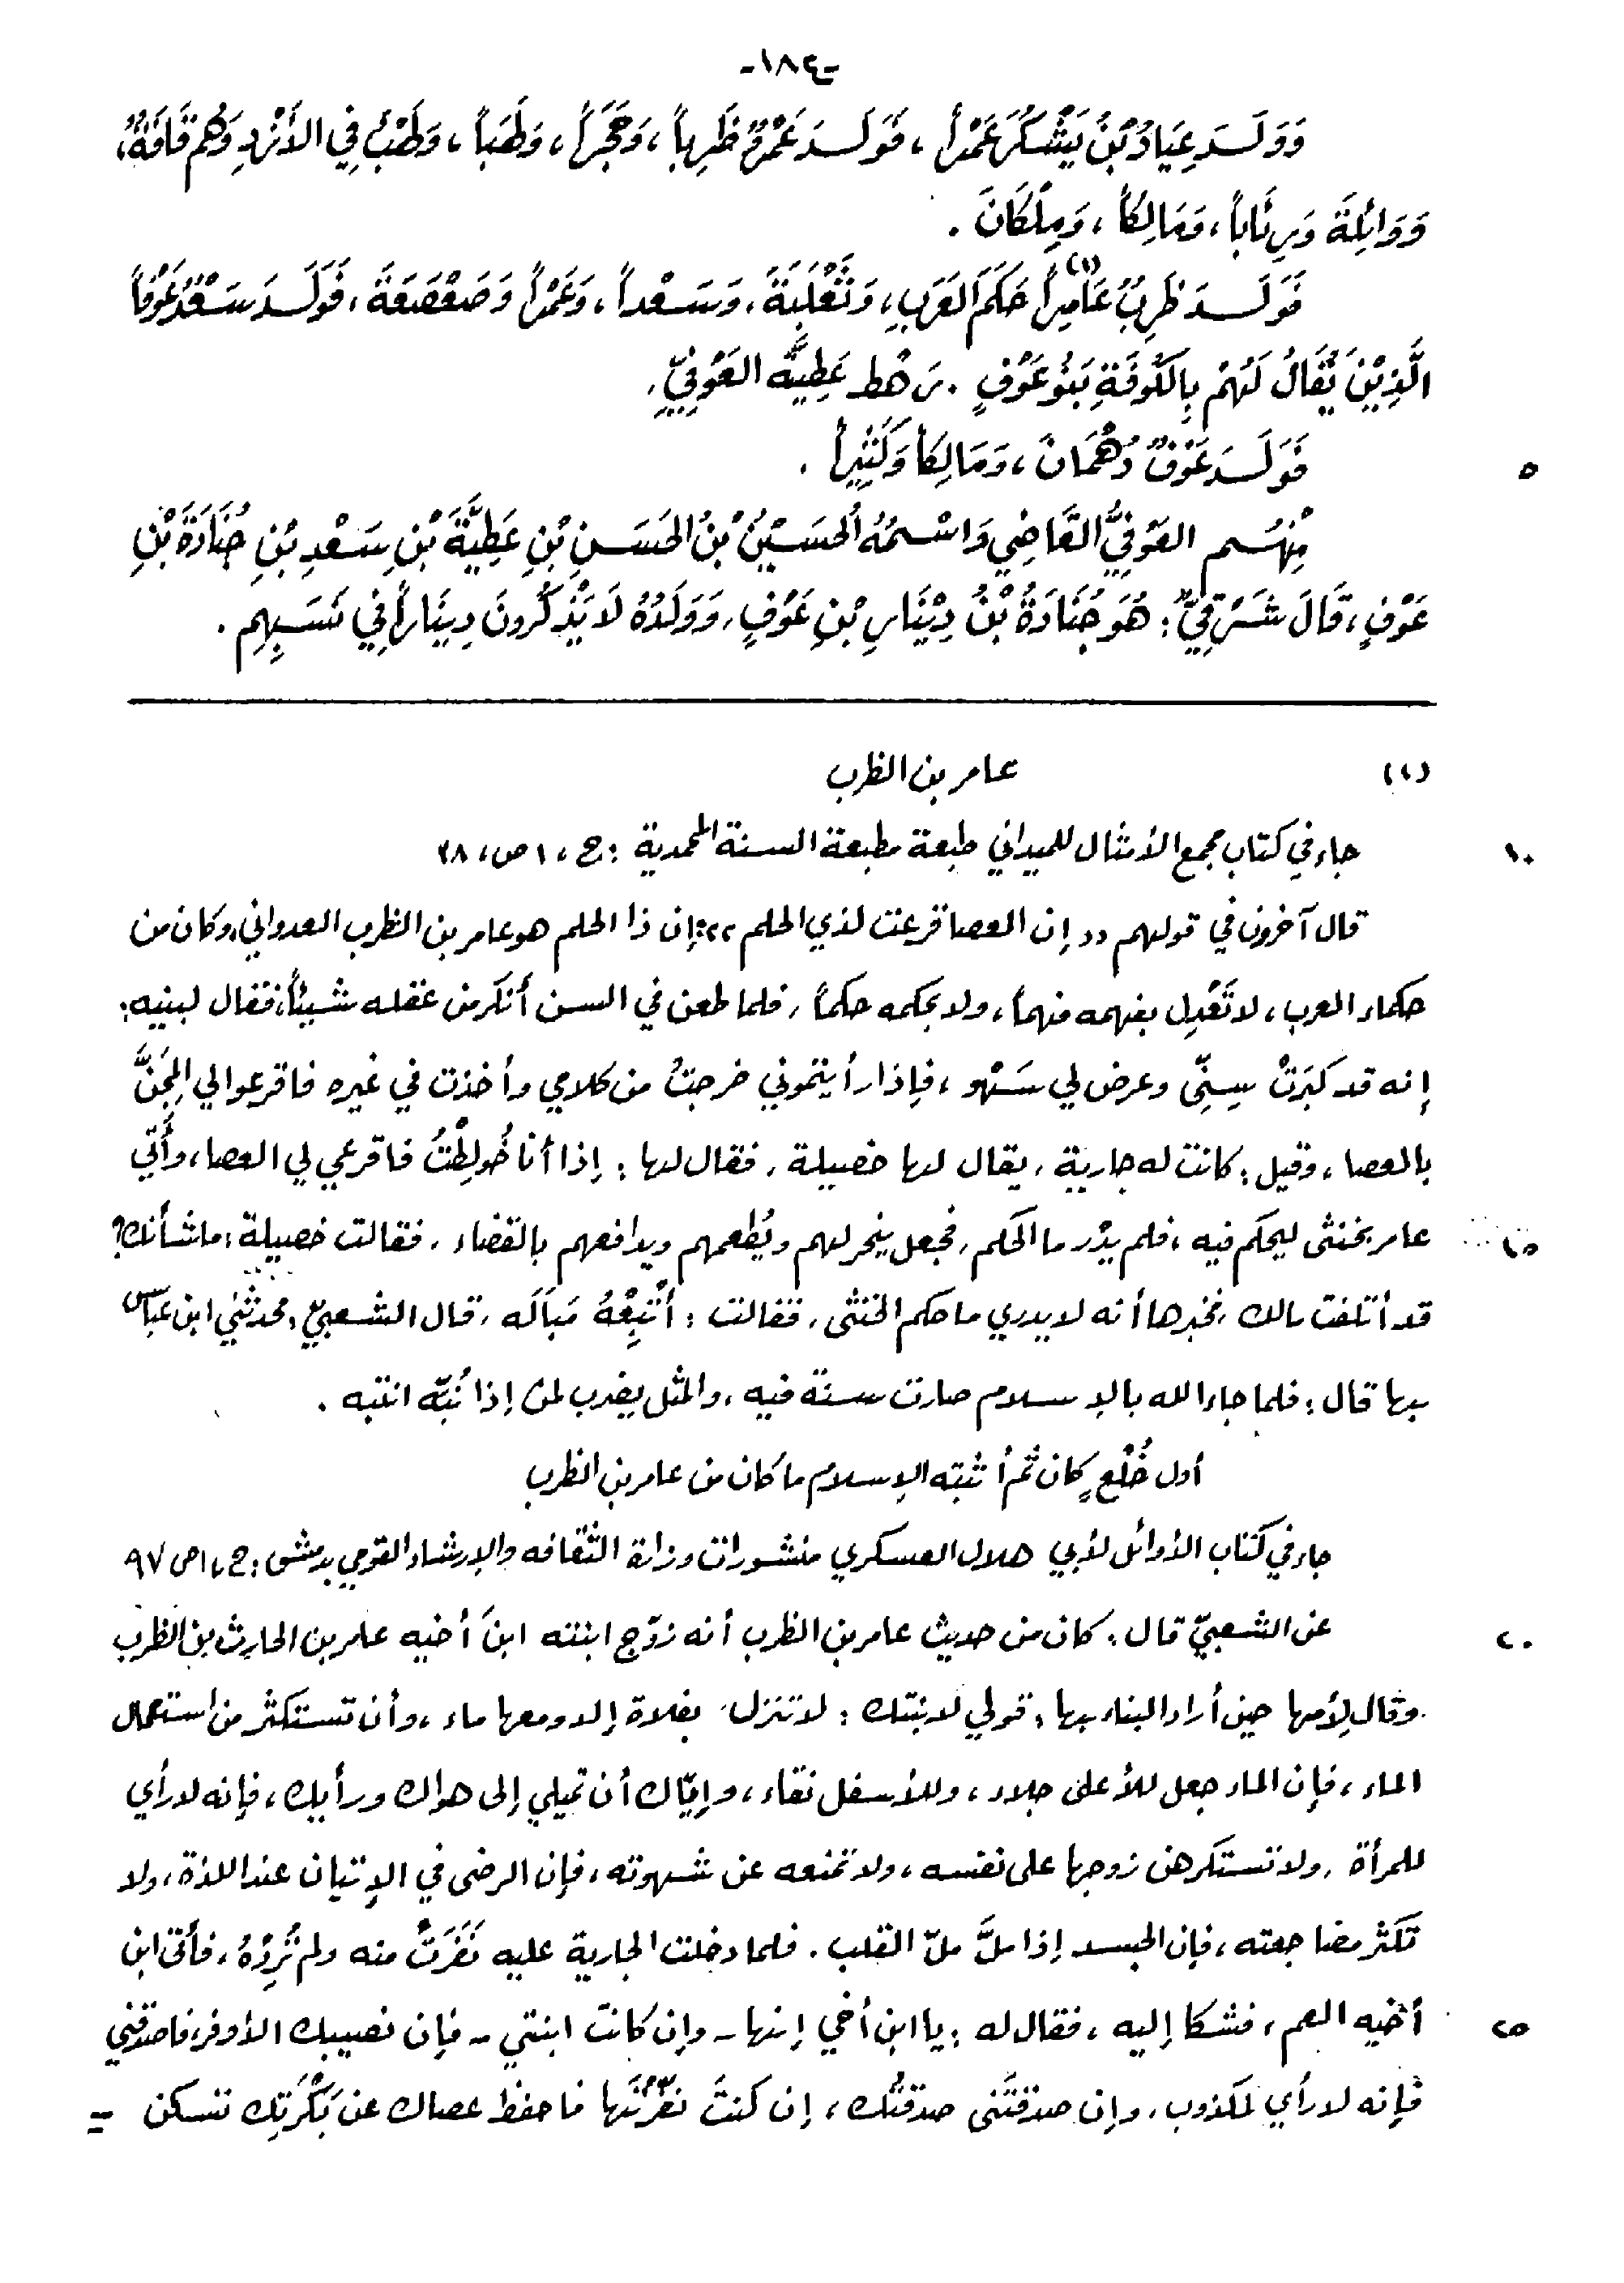 -١٨٤-
وَوَلَـدَ عِيَاذُ بْنُ يَشْكُرَ عَمْراً، فَوَلَـدَ عَمْرٌو ظَرِباً، وَحَجَراً، وَطَهَباً، وَطَهْبٌ فِي الأَزْدِ وَهُم قَافَةٌ،
وَوَائِلَةَ وَرِئَاباً، وَمَالِكاً، وَمِلْكَانَ .
فَوَلَـدَ ظَرِبٌ عَامِراً (١) حَكَمَ العَرَبِ، وَثَعْلَبَةَ، وَسَعْداً، وَعَمْراً وَصَعْصَعَةَ، فَوَلَـدَ سَعْدٌ عَوْفاً
الَّذِيْنَ يُقَالُ لَهُمْ بِالكُوفَةِ بَنُو عَوْفٍ . رَهْط عَطِيَّه العَوْفِيِّ.
فَوَلَـدَ عَوْفٌ دُهْمَانَ، وَمَالِكاً وَكَثِيراً .
٥
مِنْهُـم العَوْفِيُّ القَاضِي وَاسْمُهُ الحُسَـيْنُ بْنُ الحَسَـنِ بْنِ عَطِيَّةَ بْنِ سَعْدِ بْنِ جُنَادَةَ بْنِ
عَوْفٍ، قَالَ شَـرْقِيٌّ : هُوَ جُنَادَةُ بْنُ دِيْنَارِ بْنِ عَوْفٍ، وَوَلَدُهُ لَا يَذْكُرُونَ دِينَاراً فِي نَسَـبِهِم .
(١) عامر بن الظرب
جاء في كتاب مجمع الأمثال للميداني طبعة مطبعة السنة المحمدية : ج، ١ ص، ٣٨
١٠
قال آخرون في قولهم «إن العصا قرعت لذي الحلم»: إن ذا الحلم هو عامر بن الظرب العدواني، وكان من
حكماء العرب، لا تَعْدِل بفهمه فهماً، ولا بحكمه حكماً، فلما طعن في السن أنكر من عقله شيئاً، فقال لبنيه:
إنه قد كَبِرَتْ سِنِّى وعرض لي سَـهْو، فإذا رأيتموني خرجتُ من كلامي وأخذت في غيره فاقرعوا لي المِجَنَّ
بالعصا، وقيل: كانت له جارية، يقال لها خصيلة، فقال لها : إذا أنا خُولِطْتُ فاقرعي لي العصا، وأُتِي
عامر بخنثى ليحكم فيه، فلم يدْر ما الحَكم، فجعل ينحر لهم ويُطعمهم ويدافعهم بالقضاء، فقالت خصيلة: ما شأنك؟
١٥
قد أتلفت مالك، فخبرها أنه لا يدري ما حكم الخنثى، فقالت : أَتْبِعْهُ مَبَالَه، قال الشعبيّ: فحدثني ابن عباس
بها قال: فلما جاء الله بالإسلام صارت سنة فيه، والمثل يضرب لمن إذا نُبّه انتبه .
أول خُلْعٍ كان ثم أثبته الإسلام ما كان من عامر بن الظرب
جاء في كتاب الأوائل لأبي هلال العسكري منشورات وزارة الثقافه والإرشاد القومي بدمشق: ج، ١ ص ٩٧
عن الشعبيّ قال: كان من حديث عامر بن الظرب أنه زوّج ابنته ابنَ أخيه عامر بن الحارث بن الظرب
٢٠
وقال لِأمها حين أراد البناء بها، قولي لابنتك : لا تنزلنّ بفلاة إلا ومعها ماء، وأن تستكثر من استعمال
الماء، فإن الماء جعل للأعلى جلاء، وللأسفل نقاء، وإيّاك أن تميلي إلى هواك ورأيك، فإنه لا رأي
للمرأة، ولا تستكرهن زوجها على نفسه، ولا تمنعه عن شهوته، فإن الرضى في الإتيان عند اللذة، ولا
تكثر مضاجعته، فإن الجسد إذا ملَّ ملّ القلب . فلما دخلت الجارية عليه نَفَرَتْ منه ولم تُرِدْهُ، فأتى ابن
أخيه العم، فشكا إليه، فقال له : يا ابن أخي إنها - وإن كانت ابنتي - فإن نصيبك الأوفر، فاصدقني
٢٥
فإنه لا رأي لمكذوب، وإن صدقتَنى صدقتُك، إن كنتَ نفّرتَها فاحفظ عصاك عن بَكْرَتِك تسكن =